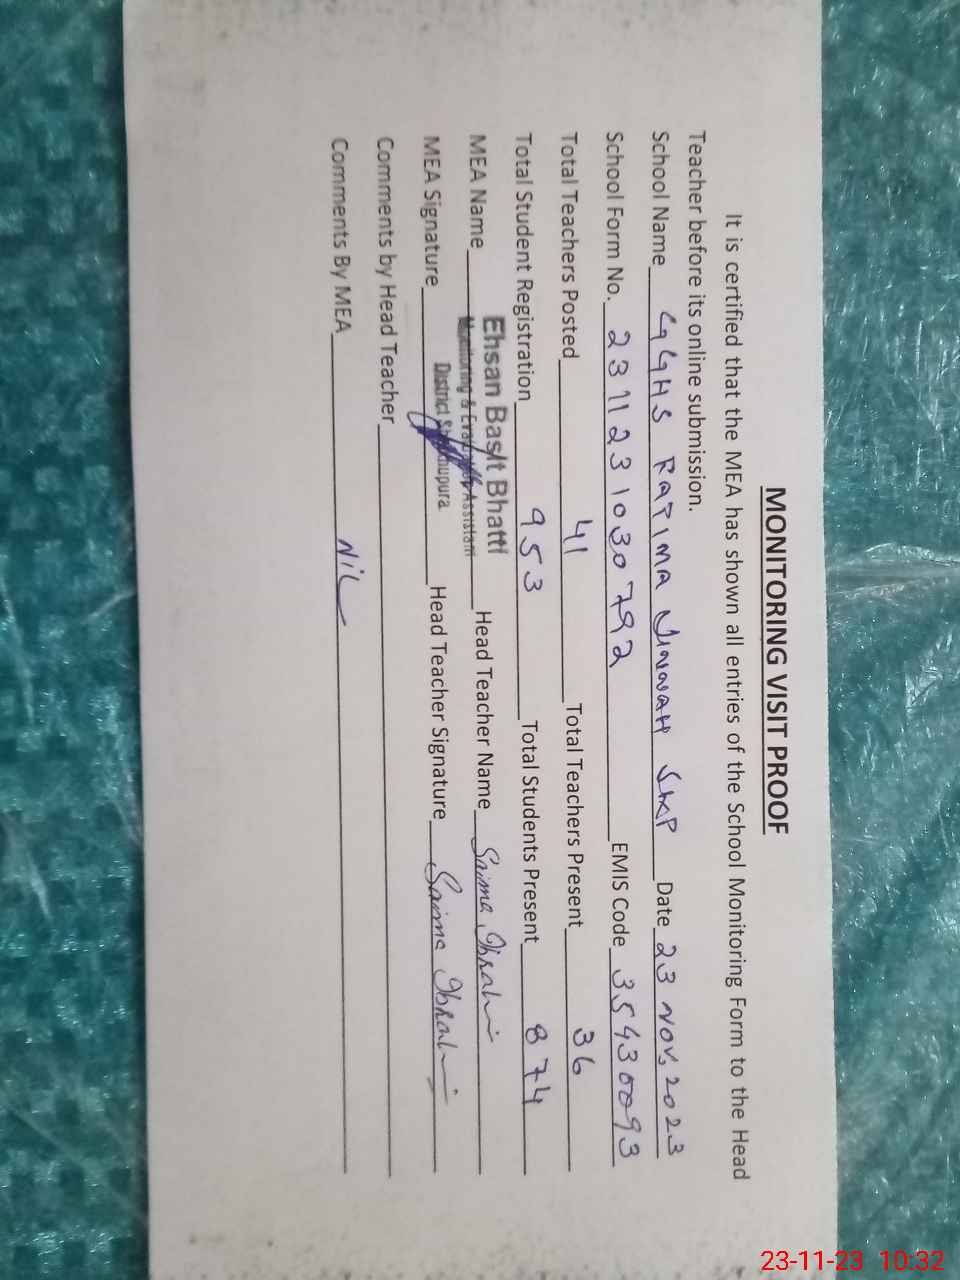 MONITORING VISIT PROOF
It is certified that the MEA has shown all entries of the School Monitoring Form to the Head
Teacher before its online submission.
School Name GGHS FATIMA JINNAH SKP Date 23 NOV. 2023
School Form No. 2311231030792 EMIS Code 35430093
Total Teachers Posted 41 Total Teachers Present 36
Total Student Registration 953 Total Students Present 874
MEA Name Ehsan Basit Bhatti Head Teacher Name Saima Ibrahim
Monitoring & Evaluation Assistant
MEA Signature District Sheikhupura Head Teacher Signature Saima Ibrahim
Comments by Head Teacher
Comments By MEA NiL
23-11-23 10:32